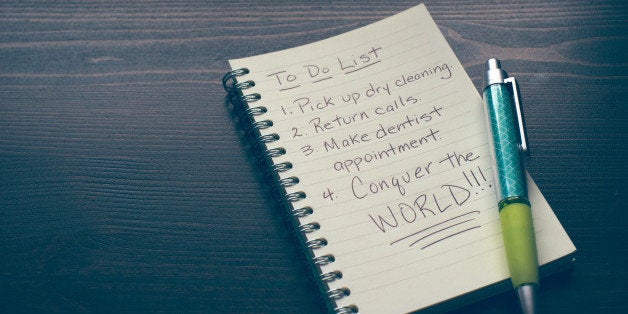 To Do List
1. Pick up dry cleaning.
2. Return calls.
3 Make dentist
appointment.
4. Conquer the
WORLD!!!